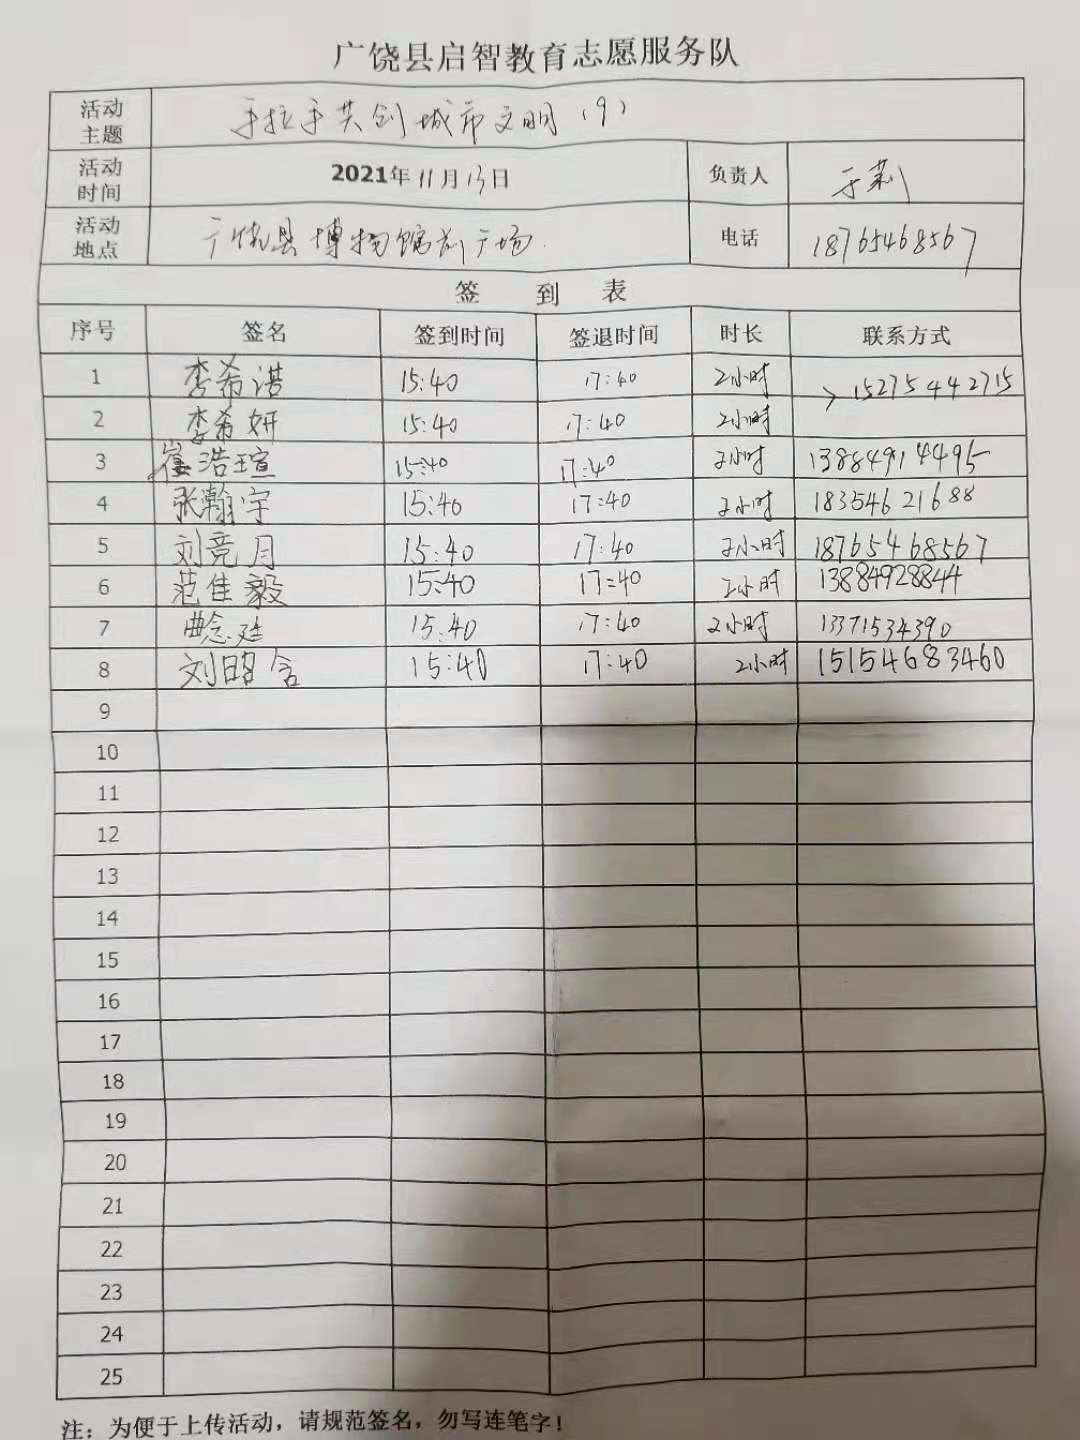 广饶县启智教育志愿服务队
活动主题 手拉手共创城市文明（9）
活动时间 2021年11月13日 负责人 于莉
活动地点 广饶县博物馆前广场 电话 18765468567
签到表
序号 签名 签到时间 签退时间 时长 联系方式
1 李希诺 15:40 17:40 2小时 15275442715
2 李希妍 15:40 17:40 2小时
3 崔浩瑄 15:40 17:40 2小时 13884914495
4 张瀚宇 15:40 17:40 2小时 18354621688
5 刘竞月 15:40 17:40 2小时 18765468567
6 范佳毅 15:40 17:40 2小时 13884928844
7 15:40 17:40 2小时 13371534390
8 刘昭含 15:40 17:40 2小时 15154683460
9
10
11
12
13
14
15
16
17
18
19
20
21
22
23
24
25
注：为便于上传活动，请规范签名，勿写连笔字！